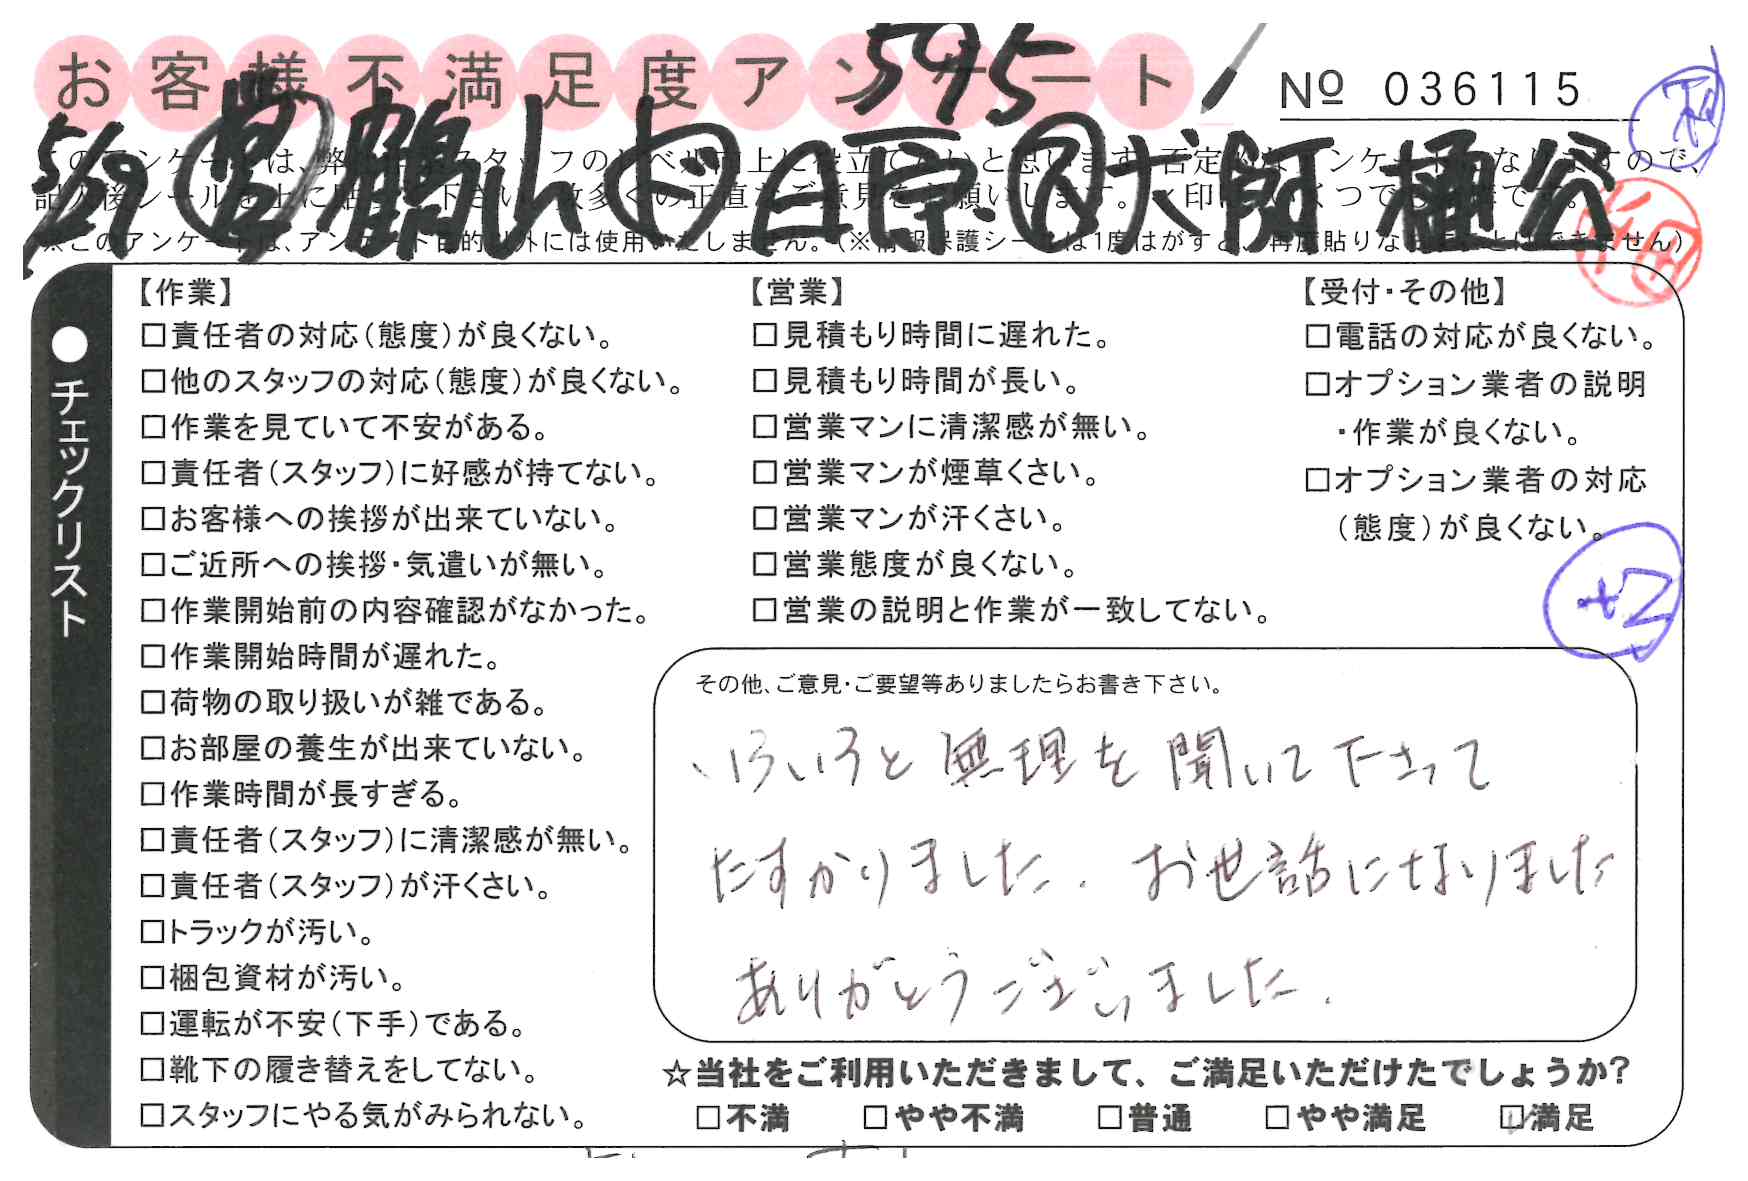 お客様不満足度アンケート
595
№ 036115
5/29 営 鶴山 ド 白原. 同 犬飼 樋谷
※このアンケートは、アンケート目的以外には使用いたしません。(※情報保護シールは1度はがすと、再度貼りなおすことはできません)
●チェックリスト
【作業】
□責任者の対応(態度)が良くない。
□他のスタッフの対応(態度)が良くない。
□作業を見ていて不安がある。
□責任者(スタッフ)に好感が持てない。
□お客様への挨拶が出来ていない。
□ご近所への挨拶・気遣いが無い。
□作業開始前の内容確認がなかった。
□作業開始時間が遅れた。
□荷物の取り扱いが雑である。
□お部屋の養生が出来ていない。
□作業時間が長すぎる。
□責任者(スタッフ)に清潔感が無い。
□責任者(スタッフ)が汗くさい。
□トラックが汚い。
□梱包資材が汚い。
□運転が不安(下手)である。
□靴下の履き替えをしてない。
□スタッフにやる気がみられない。
【営業】
□見積もり時間に遅れた。
□見積もり時間が長い。
□営業マンに清潔感が無い。
□営業マンが煙草くさい。
□営業マンが汗くさい。
□営業態度が良くない。
□営業の説明と作業が一致してない。
【受付・その他】
□電話の対応が良くない。
□オプション業者の説明
・作業が良くない。
□オプション業者の対応
(態度)が良くない。
その他、ご意見・ご要望等ありましたらお書き下さい。
いろいろと無理を聞いて下さって
たすかりました. お世話になりました
ありがとうございました.
☆当社をご利用いただきまして、ご満足いただけたでしょうか?
□不満 □やや不満 □普通 □やや満足 ☑満足